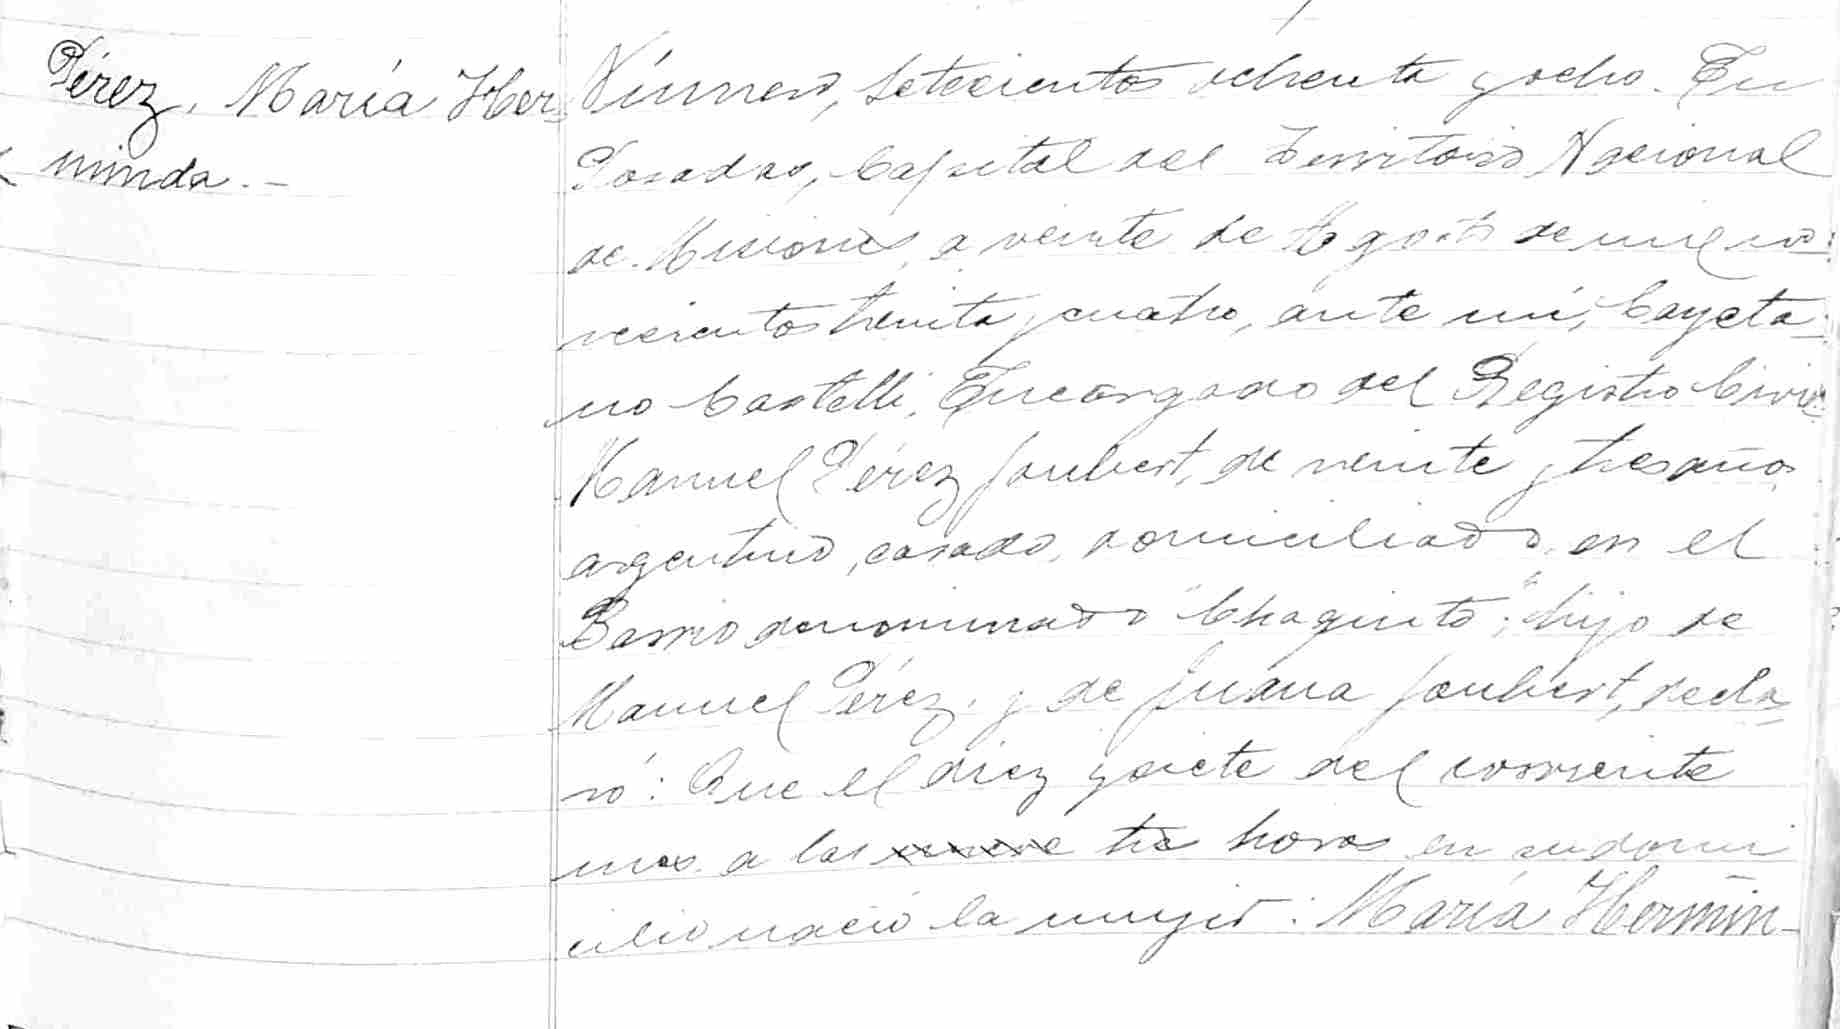 Pérez, María Her-
minda.-
Número, setecientos ochenta y ocho. En
Posadas, Capital del Territorio Nacional
de Misiones, a veinte de Agosto de mil no-
vecientos treinta y cuatro, ante mí, Cayeta-
no Castelli, Encargado del Registro Civil
Manuel Pérez Joubert, de veinte y tres años,
argentino, casado, domiciliado en el
Barrio denominado "Chaquito"; hijo de
Manuel Pérez, y de Juana Joubert, decla-
ró: Que el diez y siete del corriente
mes a las tres horas en su domi
cilio nació la mujer: María Hermin-